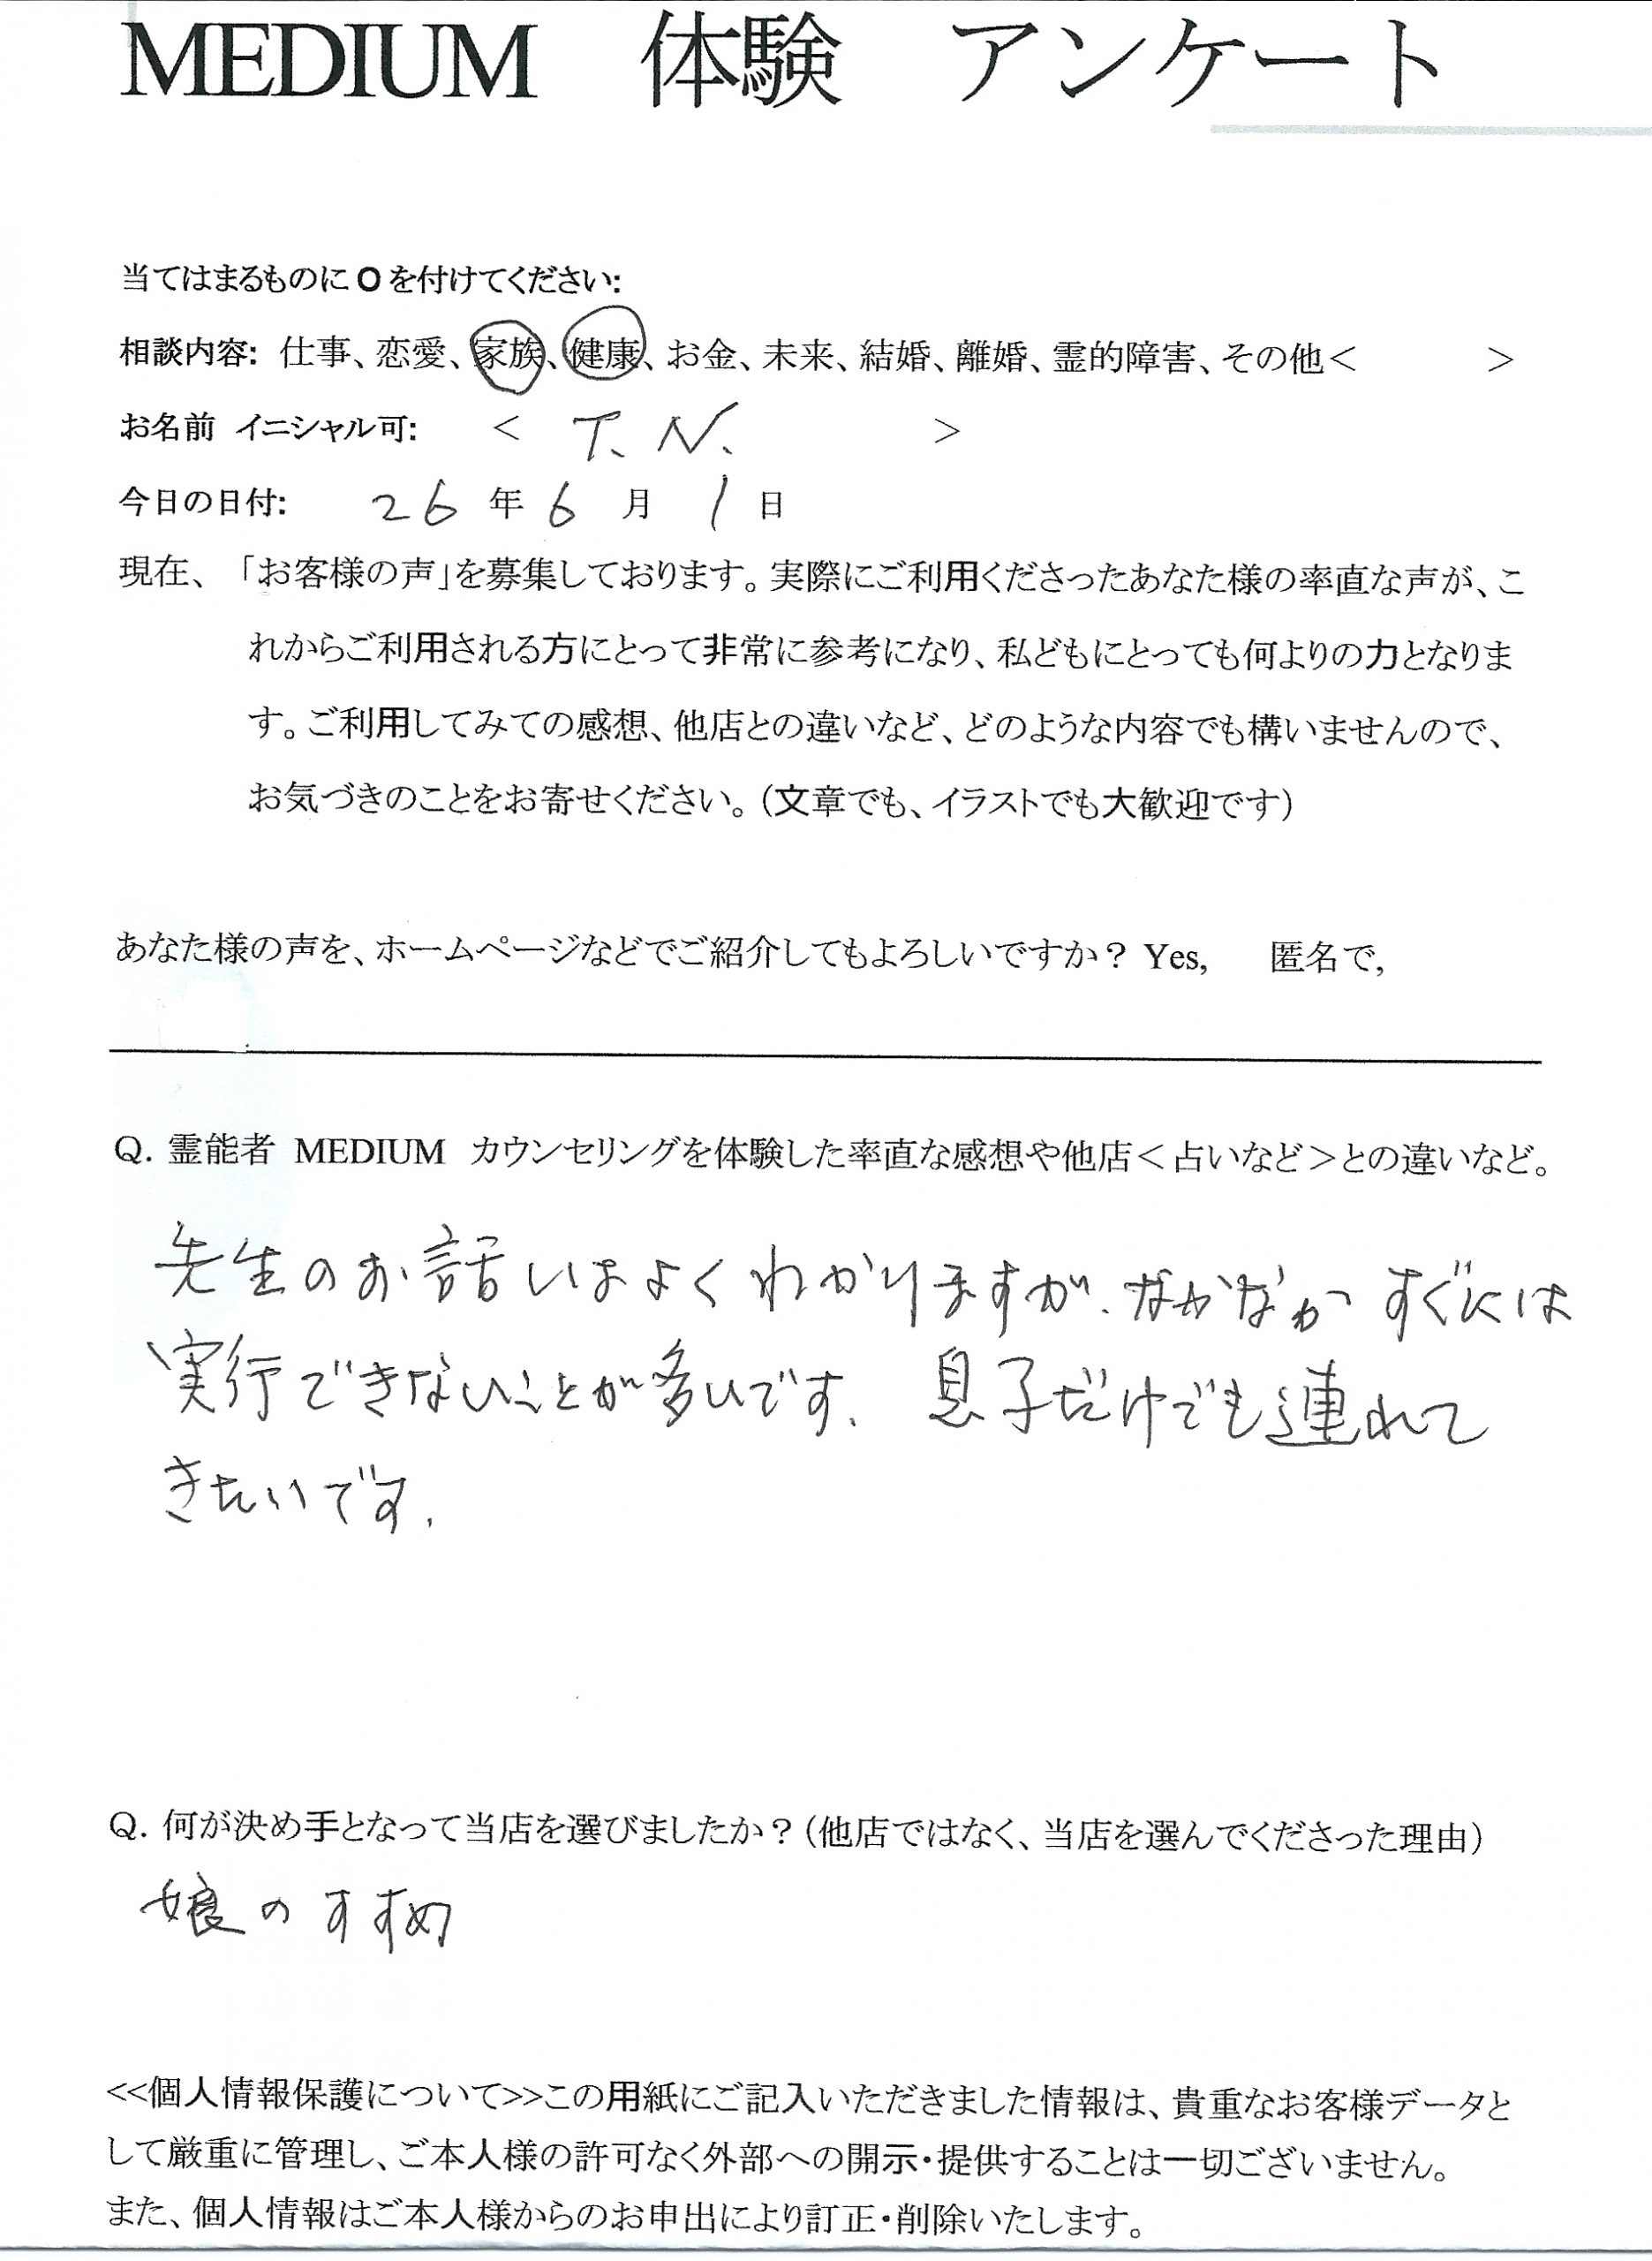 MEDIUM 体験 アンケート
当てはまるものに○を付けてください:
相談内容: 仕事、恋愛、家族、健康、お金、未来、結婚、離婚、霊的障害、その他＜ ＞
お名前 イニシャル可: ＜ T. N. ＞
今日の日付: 26 年 6 月 1 日
現在、「お客様の声」を募集しております。実際にご利用くださったあなた様の率直な声が、こ
れからご利用される方にとって非常に参考になり、私どもにとっても何よりの力となりま
す。ご利用してみての感想、他店との違いなど、どのような内容でも構いませんので、
お気づきのことをお寄せください。（文章でも、イラストでも大歓迎です）
あなた様の声を、ホームページなどでご紹介してもよろしいですか？ Yes, 匿名で,
Q. 霊能者 MEDIUM カウンセリングを体験した率直な感想や他店＜占いなど＞との違いなど。
先生のお話しはよくわかりますが、なかなか すぐには
実行できないことが多いです。 息子だけでも連れて
きたいです。
Q. 何が決め手となって当店を選びましたか？（他店ではなく、当店を選んでくださった理由）
娘のすすめ
<<個人情報保護について>>この用紙にご記入いただきました情報は、貴重なお客様データと
して厳重に管理し、ご本人様の許可なく外部への開示・提供することは一切ございません。
また、個人情報はご本人様からのお申出により訂正・削除いたします。